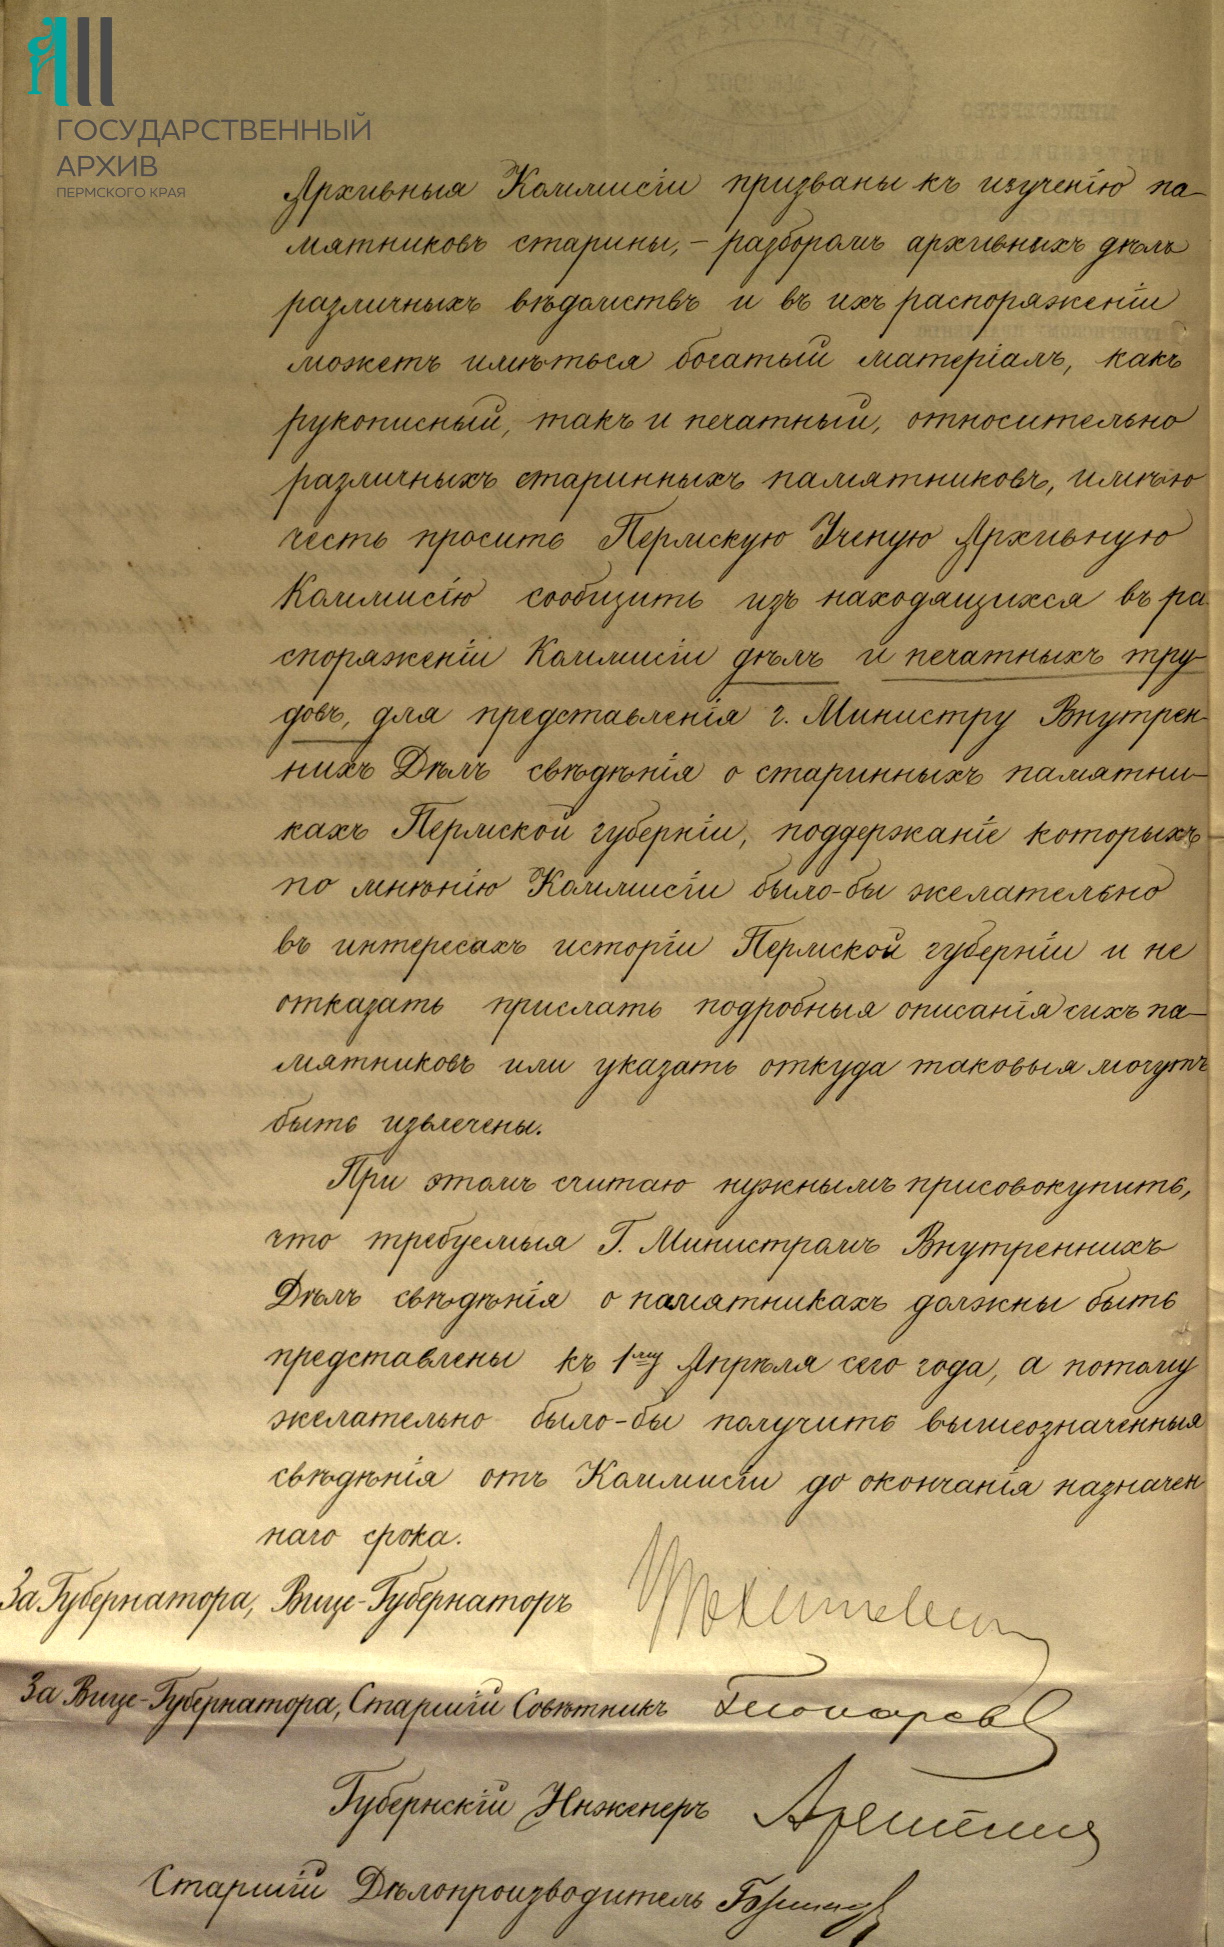 ГОСУДАРСТВЕННЫЙ
АРХИВ
ПЕРМСКОГО КРАЯ
Архивныя Коммисіи призваны къ изученію па-
мятниковъ старины, – разборомъ архивныхъ дѣлъ
различныхъ вѣдомствъ и въ ихъ распоряженіи
можетъ имѣться богатый матеріалъ, какъ
рукописный, такъ и печатный, относительно
различныхъ старинныхъ памятниковъ, имѣю
честь просить Пермскую Ученую Архивную
Коммисію сообщить изъ находящихся въ ра
споряженіи Коммисіи дѣлъ и печатныхъ тру-
довъ, для представленія г. Министру Внутрен-
нихъ Дѣлъ свѣдѣнія о старинныхъ памятни-
кахъ Пермской губерніи, поддержаніе которыхъ
по мнѣнію Коммисіи было-бы желательно
въ интересахъ исторіи Пермской губерніи и не
отказать прислать подробныя описанія сихъ па-
мятниковъ или указать откуда таковыя могутъ
быть извлечены.
При этомъ считаю нужнымъ присовокупить,
что требуемыя Г. Министромъ Внутреннихъ
Дѣлъ свѣдѣнія о памятникахъ должны быть
представлены къ 1му Апрѣля сего года, а потому
желательно было-бы получить вышеозначенныя
свѣдѣнія отъ Коммисіи до окончанія назначен
наго срока.
За Губернатора, Вице-Губернаторъ
За Вице-Губернатора, Старшій Совѣтникъ
Губернскій Инженеръ
Старшій Дѣлопроизводитель